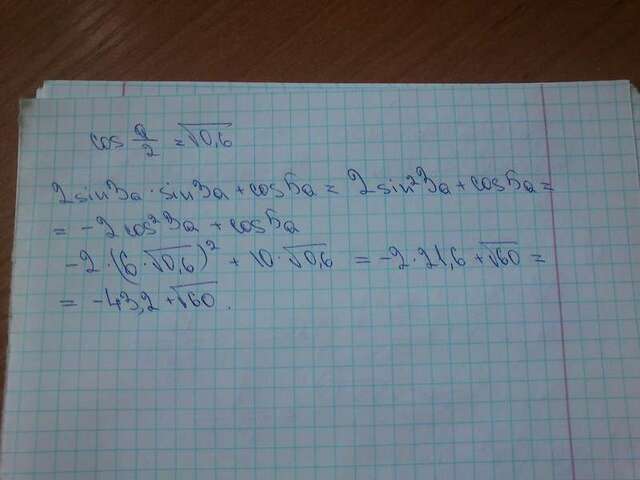 cos a/2 = √0,6
2sin3a · sin3a + cos5a = 2sin²3a + cos5a =
= -2cos²3a + cos5a
-2 · (6 · √0,6)² + 10 · √0,6 = -2 · 21,6 + √60 =
= -43,2 + √60.